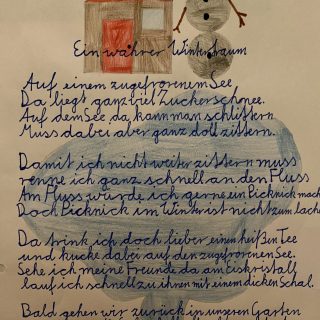 Ein wahrer Wintertraum
Auf einem zugefrorenem See
Da liegt ganz viel Zuckerschnee.
Auf dem See da kann man schlittern
Muss dabei aber ganz doll zittern.
Damit ich nicht weiter zittern muss
renne ich ganz schnell an den Fluss
Am Fluss würde ich gerne ein Picknick mach
Doch Picknick im Winter ist nicht zum lache
Da trink ich doch lieber einen heißen Tee
und kucke dabei auf den zugefrorenen See.
Sehe ich meine Freunde da am Eiskristall
lauf ich schnell zu ihnen mit einem dicken Schal.
Bald gehen wir zurück in unseren Garten